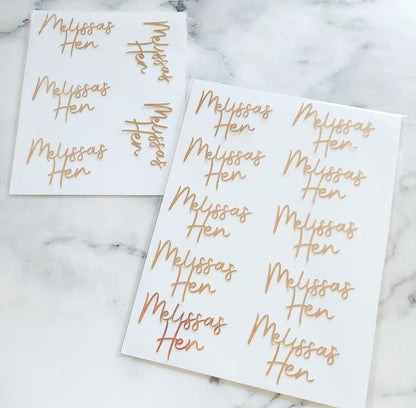 Melissas
Hen
Melissas
Hen
Melissas
Hen
Melissas
Hen
Melissas
Hen
Melissas
Hen
Melissas
Hen
Melissas
Hen
Melissas
Hen
Melissas
Hen
Melissas
Hen
Melissas
Hen
Melissas
Hen
Melissas
Hen
Melissas
Hen